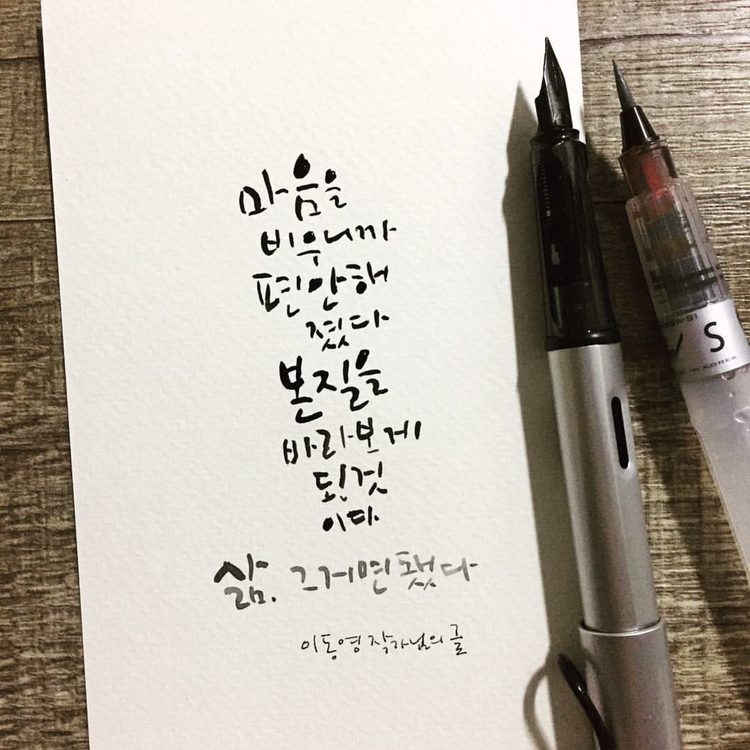 마음을
비우니까
편안해
졌다
본질을
바라보게
된것
이다.
삶. 그거면 됐다
이동영 작가님의 글
S
IN KOREA